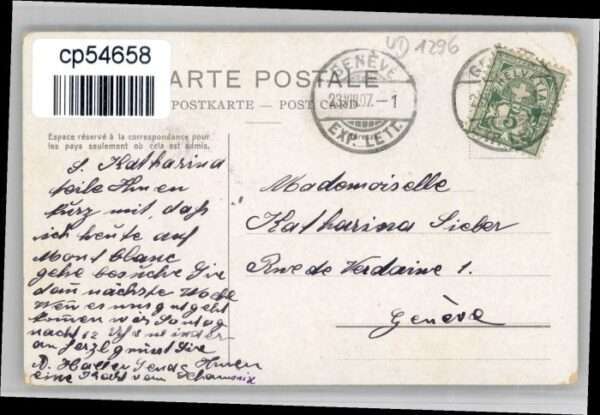 cp54658
CARTE POSTALE
POSTKARTE — POST CARD
UD 1296
GENÈVE
23.VIII.07.–1
EXP. LETT.
HELVETIA
5
Espace réservé à la correspondance pour
les pays seulement où cela est admis.
S. Katharina
teile Ihnen
kurz mit, daß
ich heute auf
Mont blanc
gehe besuche Sie
dan nächste Woche
wen es uns gut geht
komen wir Sontag
nacht 12
D. Haller sende Ihnen
eine Karte vom Chamonix
Mademoiselle
Katharina Sieber
Rue de Verdaine 1.
Genève